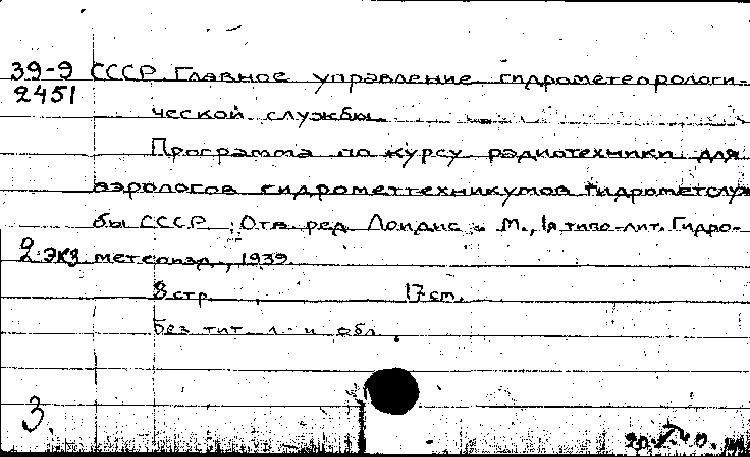 39-9 СССР. Главное управление гидрометеорологи-
2451
ческой службы.
Программа по курсу радиотехники для
аэрологов гидрометтехникумов Гидрометслуж
бы СССР. Отв. ред. М., 1я типо-лит. Гидро-
2 экз. метеоизд., 1939.
8 стр. 17 см.
Без тит. л. и обл.
3.